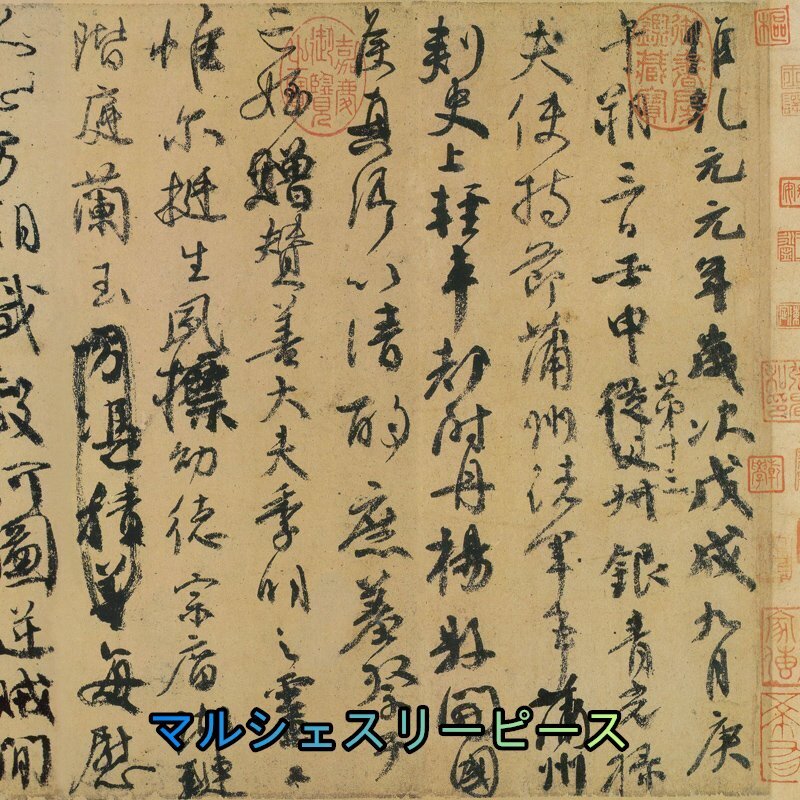 維乾元元年歲次戊戌九月庚
午朔三日壬申從父第十三叔銀青光祿
夫使持節蒲州諸軍事蒲州
刺史上輕車都尉丹楊縣開國
侯真卿以清酌庶羞祭于
亡姪贈贊善大夫季明之靈
惟爾挺生夙標幼德宗廟瑚璉
階庭蘭玉方憑積善每慰
人心方期戩穀何圖逆賊閒
嘉慶御覽之寶
マルシェスリーピース